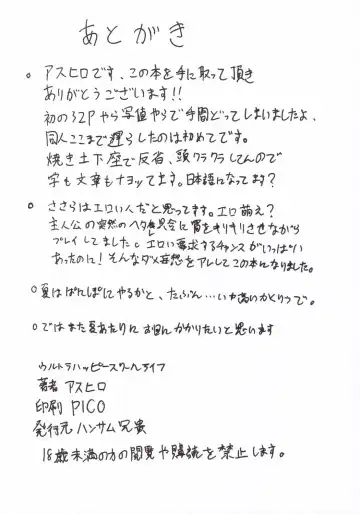 あとがき
。アスヒロです、この本を手に取って頂き
ありがとうございます!!
初の32Pやら写植やらで手間どってしまいましたよ、
同人ここまで遅らしたのは初めてです。
焼き土下座で反省、頭クラクラしてんので
字も文章もナヨッてます。日本語になってます?
。ささらはエロい人だと思ってます。エロ萌え?
主人公の突然のヘタレ具合に胃をキリキリさせながら
プレイしてましたしエロい要求するチャンスがいっぱい
あったのに!そんなダメ妄想をアレしてこの本になりました。
。夏はぱんぱにやるかと、たぶん…
。ではまた夏あたりにお目にかかりたいと思います
ウルトラハッピースクールライフ
著者 アスヒロ
印刷 PICO
発行元 ハンサム兄貴
18歳未満の方の閲覧や購読を禁止します。